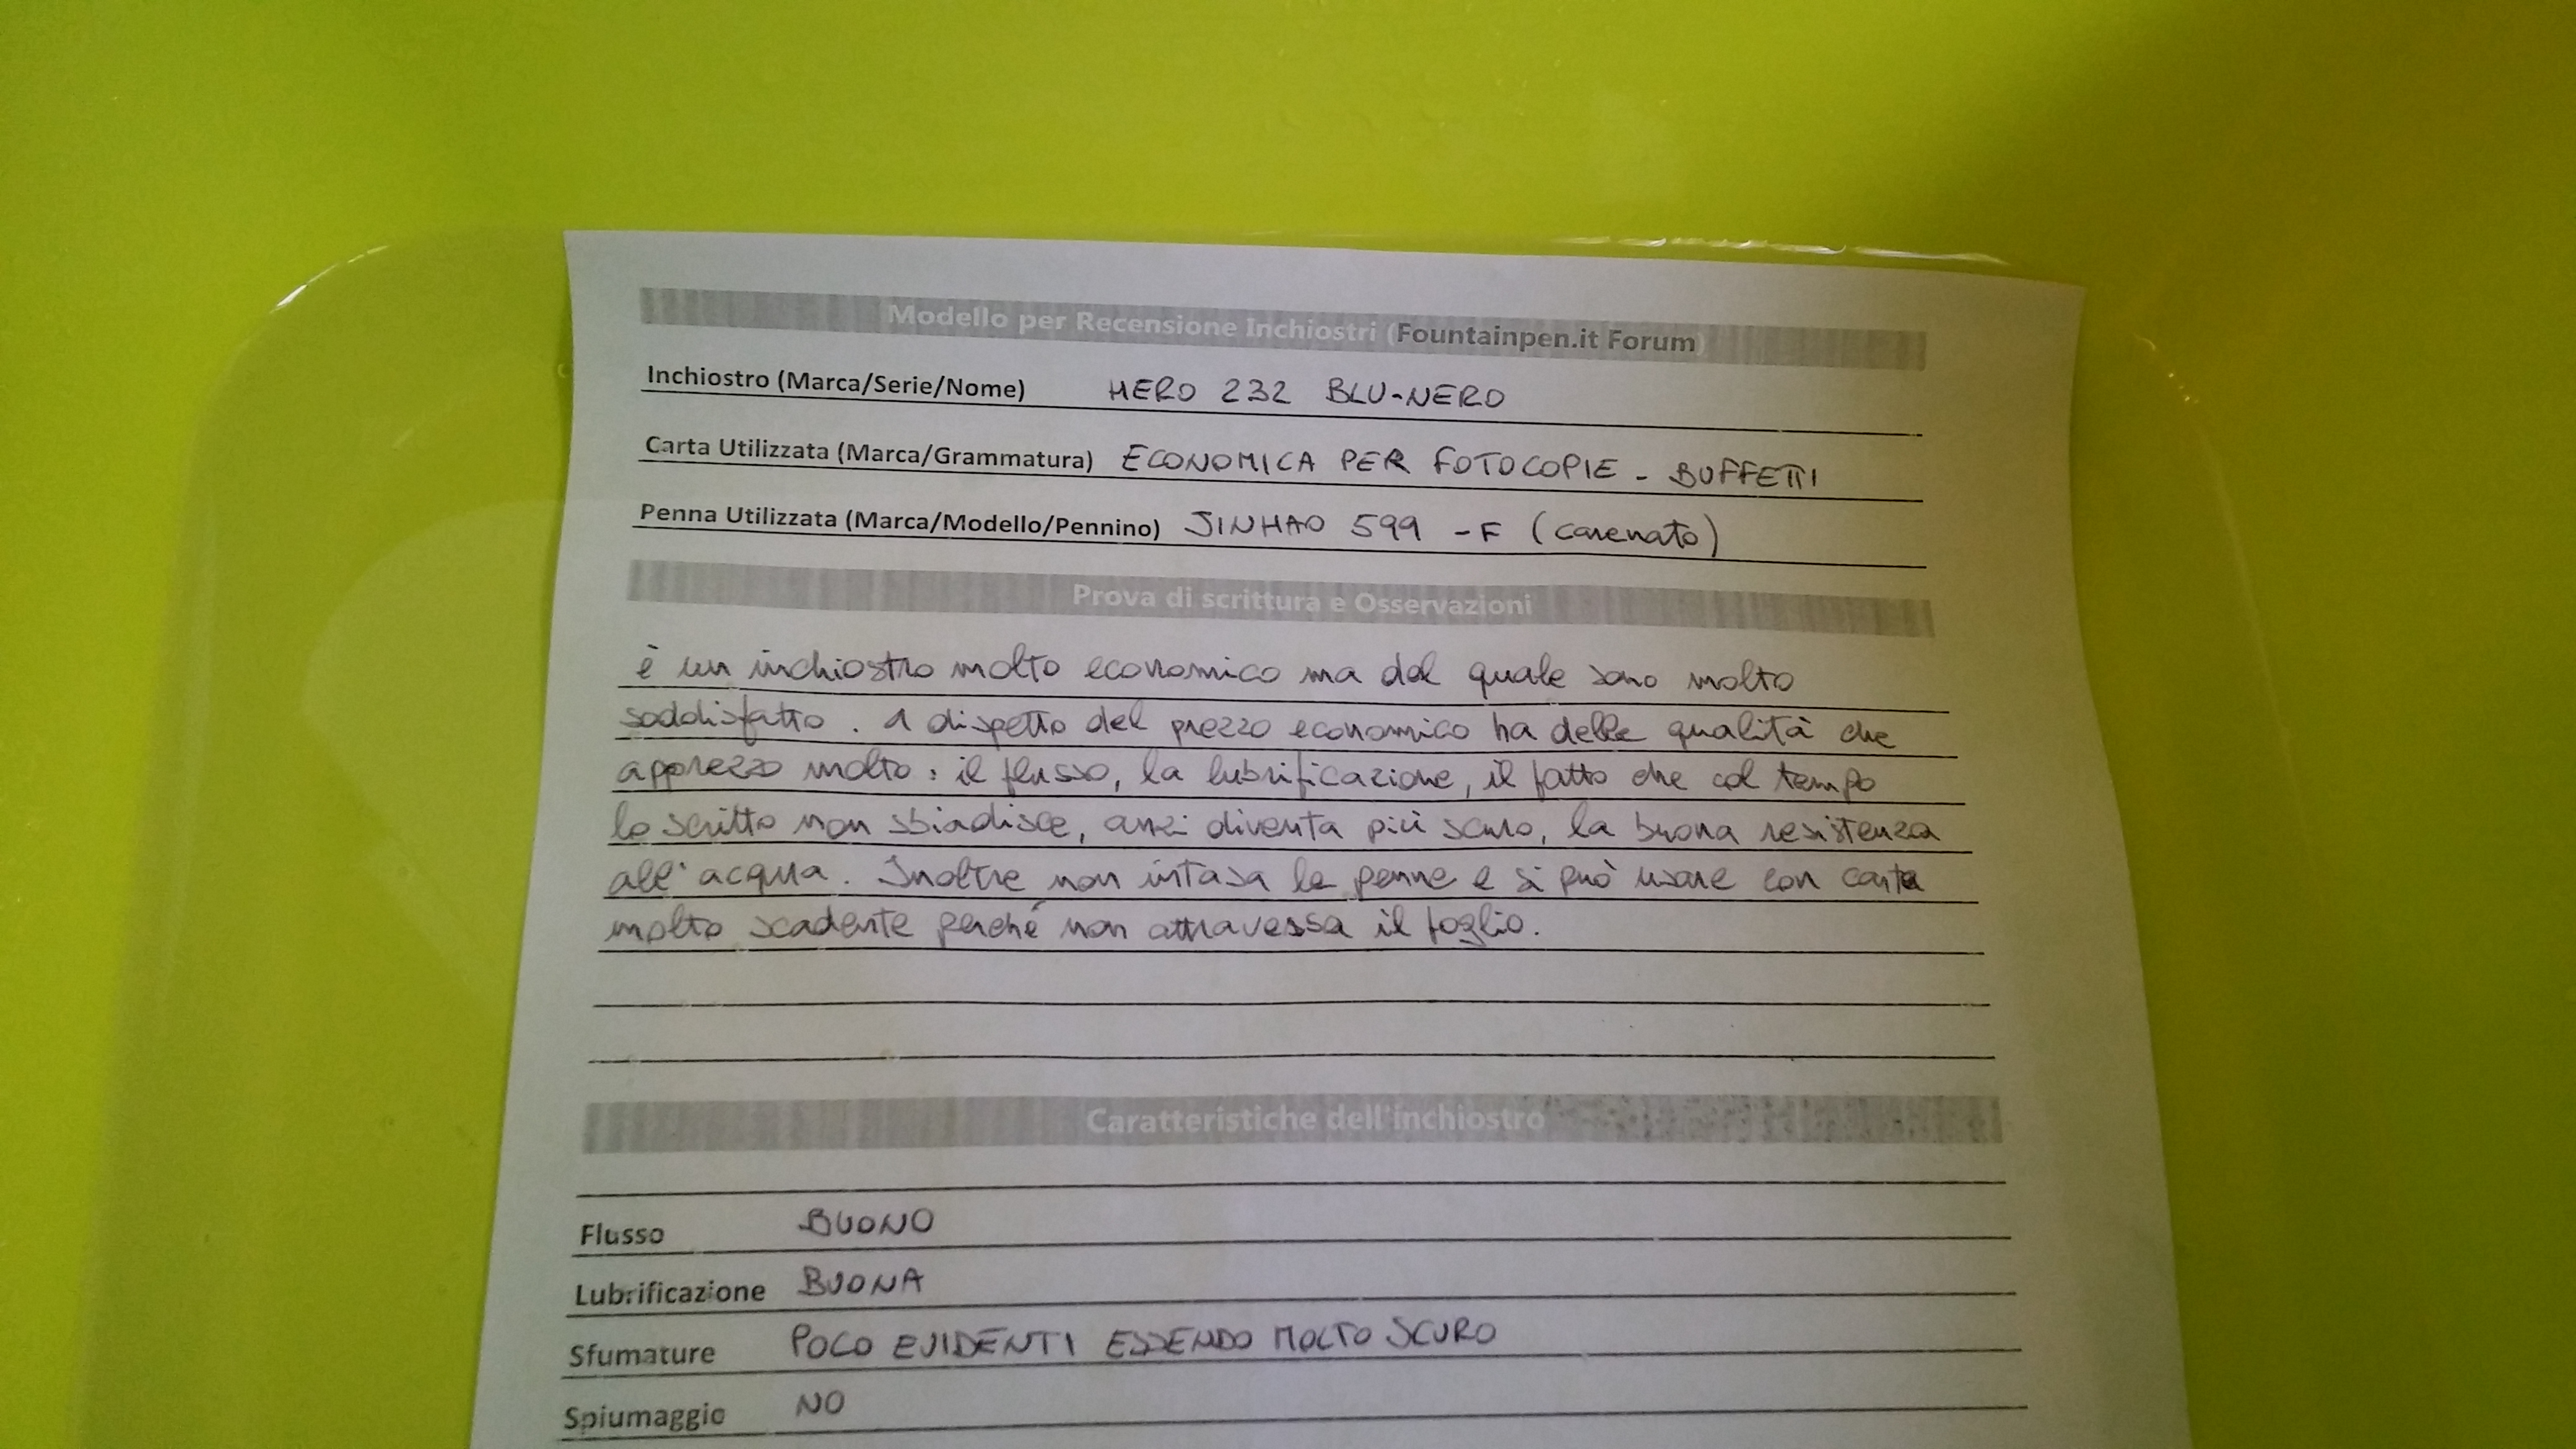 Modello per Recensione Inchiostri (Fountainpen.it Forum)
Inchiostro (Marca/Serie/Nome) HERO 232 BLU-NERO
Carta Utilizzata (Marca/Grammatura) ECONOMICA PER FOTOCOPIE - BUFFETTI
Penna Utilizzata (Marca/Modello/Pennino) JINHAO 599 -F (carenato)
Prova di scrittura e Osservazioni
è un inchiostro molto economico ma del quale sono molto
soddisfatto. A dispetto del prezzo economico ha delle qualità che
apprezzo molto: il flusso, la lubrificazione, il fatto che col tempo
lo scritto non sbiadisce, anzi diventa più scuro, la buona resistenza
all'acqua. Inoltre non intasa le penne e si può usare con carta
molto scadente perché non attraversa il foglio.
Caratteristiche dell'inchiostro
Flusso BUONO
Lubrificazione BUONA
Sfumature POCO EVIDENTI ESSENDO MOLTO SCURO
Spiumaggio NO